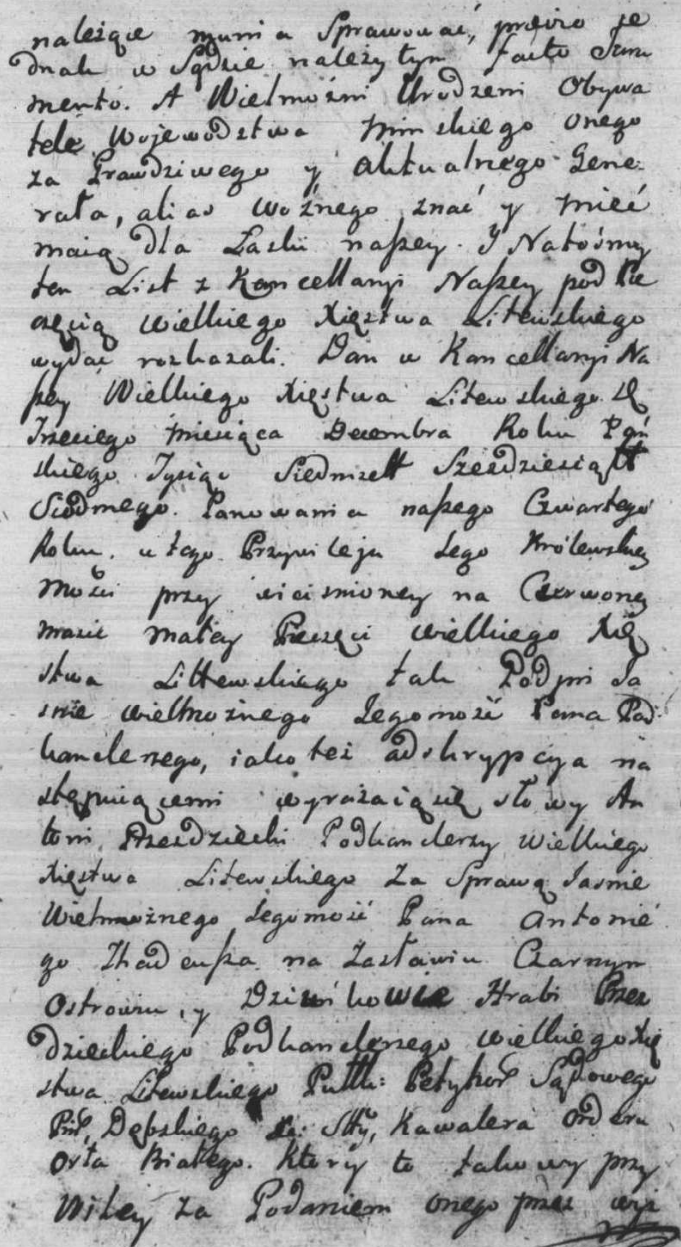 należące munia Sprawować, prawo je
dnak w Sądzie należytym facto Jura
mento. A Wielmożni Urodzeni Obywa
tele Wojewodztwa Minskiego onego
za Prawdziwego y aktualnego Gene
rała, alias Woźnego znać y mieć
maią dla Łaski naszey. I Natośmy
ten List z Kancellaryi Naszey pod Pie
częcią Wielkiego Xięstwa Litewskiego
wydać rozkazali. Dan w Kancellaryi Na
szey Wielkiego Xięstwa Litewskiego
Trzeciego Miesiąca Decembra Roku Pań
skiego Tysiąc Siedmset Szesdziesiąt
Siodmego. Panowania naszego Czwartego
Roku. u tego Przywileju Jego Królewskiey
Mości przy wicisnioney na Czerwoney
massie małey Pieczęci Wielkiego Xię
stwa Littewskiego tak Podpis Ja
snie Wielmożnego Jegomość Pana Pod
kanclerzego, iako też adskrypcya na
stępuiącemi wyrażaią się słowy An
toni Przezdziecki Podkanclerzy Wielkiego
Xięstwa Litewskiego Za Sprawą Jasnie
Wielmożnego Jegomość Pana Antonie
go Thadeusza na Zasławiu Czarnym
Ostrowiu, y Dzinkowie Hrabi Przez
dzieckiego Podkanclerzego Wielkiego Xię
stwa Litewskiego Pułk: Petyhor Sądowego
Dębskiego Kawalera Orderu
Orła Białego. Ktory to takowy przy
wiley za Podaniem onego przez wyż